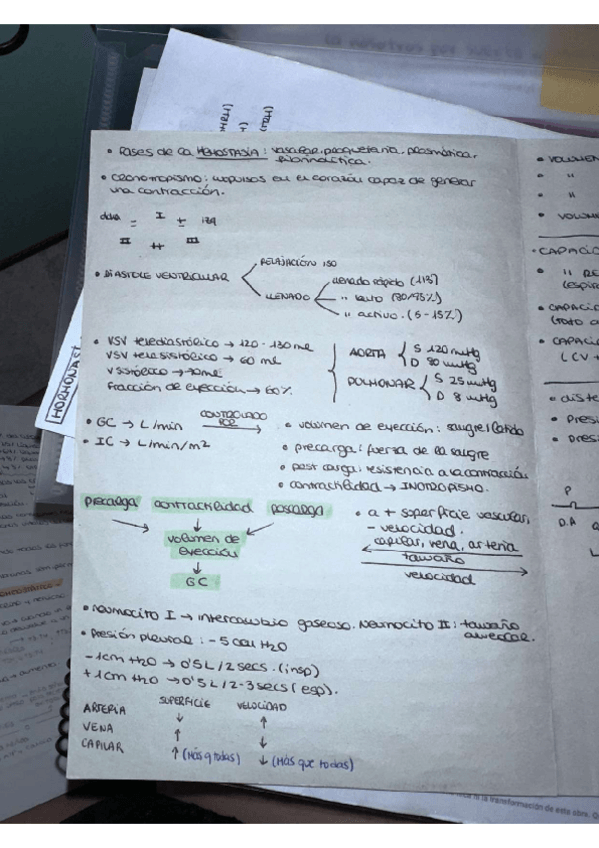 • Fases de la HEMOSTASIA: vascular, plaquetaria, plasmática,
fibrinolítica.
• Cronotropismo: impulsos en el corazón capaz de generar
una contracción.
I
II III
• DIÁSTOLE VENTRICULAR
RELAJACIÓN ISO
LLENADO
Llenado rápido (
" lento (
" activo. (5-15%)
• VSV telediastólico → 120-130 ml
VSV telesistólico → 60 ml
V sistólico → 70 ml
Fracción de eyección → 60%.
AORTA S 120 mmHg
D 80 mmHg
PULMONAR S 25 mmHg
D 8 mmHg
• GC → L/min
• IC → L/min/m2
CONTROLADO
POR
• volumen de eyección: sangre/latido
• precarga: fuerza de la sangre
• post carga: resistencia a la contracción
• contractilidad → INOTROPISMO.
precarga contractilidad poscarga
volumen de
eyección
GC
• a + superficie vascular,
- velocidad.
capilar, vena, arteria
tamaño
velocidad
• Neumocito I → intercambio gaseoso. Neumocito II: tamaño
alveolar.
• Presión pleural: -5 cm H2O
-1cm H2O → 0'5 L/2 secs. (insp)
+1cm H2O → 0'5 L/2-3 secs (esp).
SUPERFICIE VELOCIDAD
ARTERIA ↓ ↑
VENA ↑ ↓
CAPILAR ↑ (Más q todas) ↓ (Más que todas)
[HORMONAS
• VOLUMEN
"
"
• VOLUM
• CAPACIO
• " RE
(espir
• CAPACIC
(todo o
• CAPACI
(CV +
• diste
• Presi
• presi
P
D.A
la transformación de este obra.